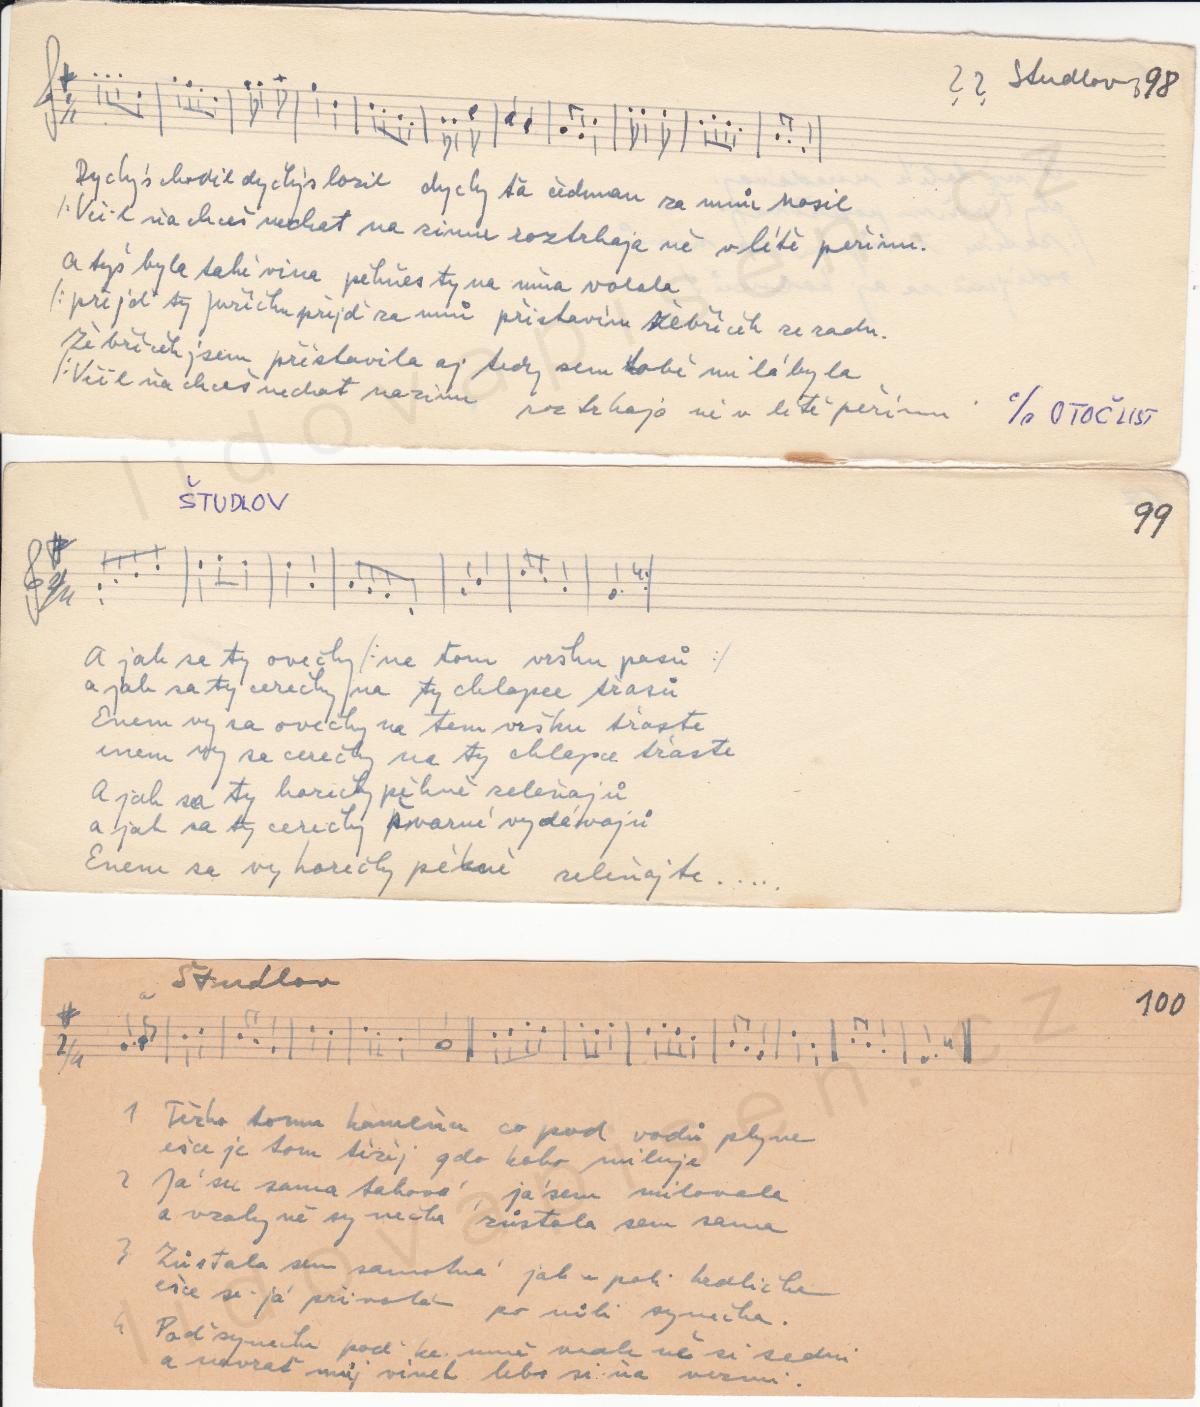 ?? Študlov 98
Dychýs chodil dychýs losil dychy ťa čédman za mnú nosil
/: Včil ňa chceš nechat na zimu roztrhaja ně v létě peřinu.
A tys byla také vina pěkňes ty na mňa volala
/: přijď ty Juríčku přijď za mnú přistavím žebříček ze zadu.
Žebříček jsem přistavila aj tedy sem tobě milá byla
/: Včil ňa chceš nechat na zimu roztrhaja ně v létě peřinu
c/o OTOČ LIST
ŠTUDLOV
99
A jak sa ty ovečky /: na tom vršku pasú :/
a jak sa ty cerečky na ty chlapce třasú
Enem vy sa ovečky na tem vršku třaste
enem vy sa cerečky na ty chlapce třaste
A jak sa ty horečky pěkně zeleňajú
a jak sa ty cerečky švarné vydávajú
Enem sa vy horečky pěkně zeleňajte.....
Študlov
100
2/4
1 Těžko tomu kameňu co pod vodú plyne
ešče je tom tížéj gdo koho miluje
2 Já su sama taková já sem milovala
a vzaly ně synečka zůstala sem sama
3 Zůstala sem samotná jak v poli hrdlička
ešče se já přivolám po mili synečka.
4 Poď synečku poď ke mně vedle ně si sedni
a navrať můj vínek lebo si ňa vezmi.
lidovapisen.cz